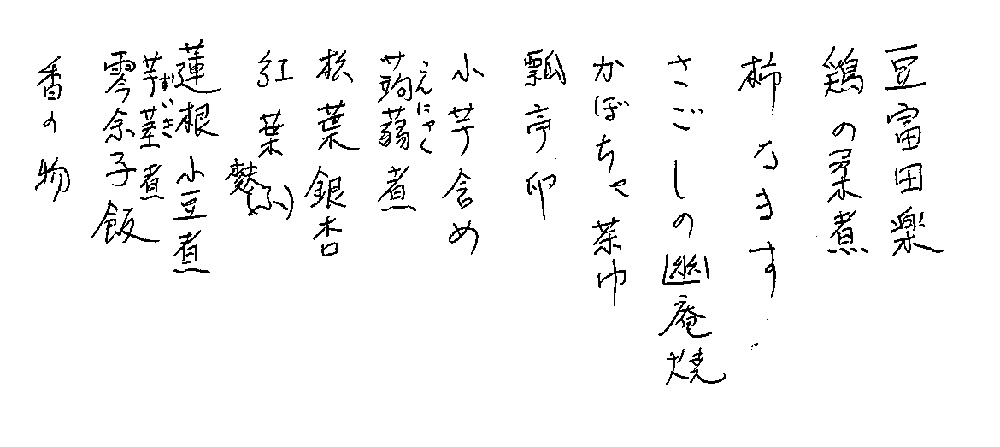 豆富田楽
鶏の柔煮
柿なます
さごしの幽庵焼
かぼちゃ茶巾
瓢亭卵
小芋含め
蒟蒻煮
こんにゃく
松葉銀杏
紅葉麩(ふ)
蓮根小豆煮
芋茎煮
ずいき
零余子飯
香の物